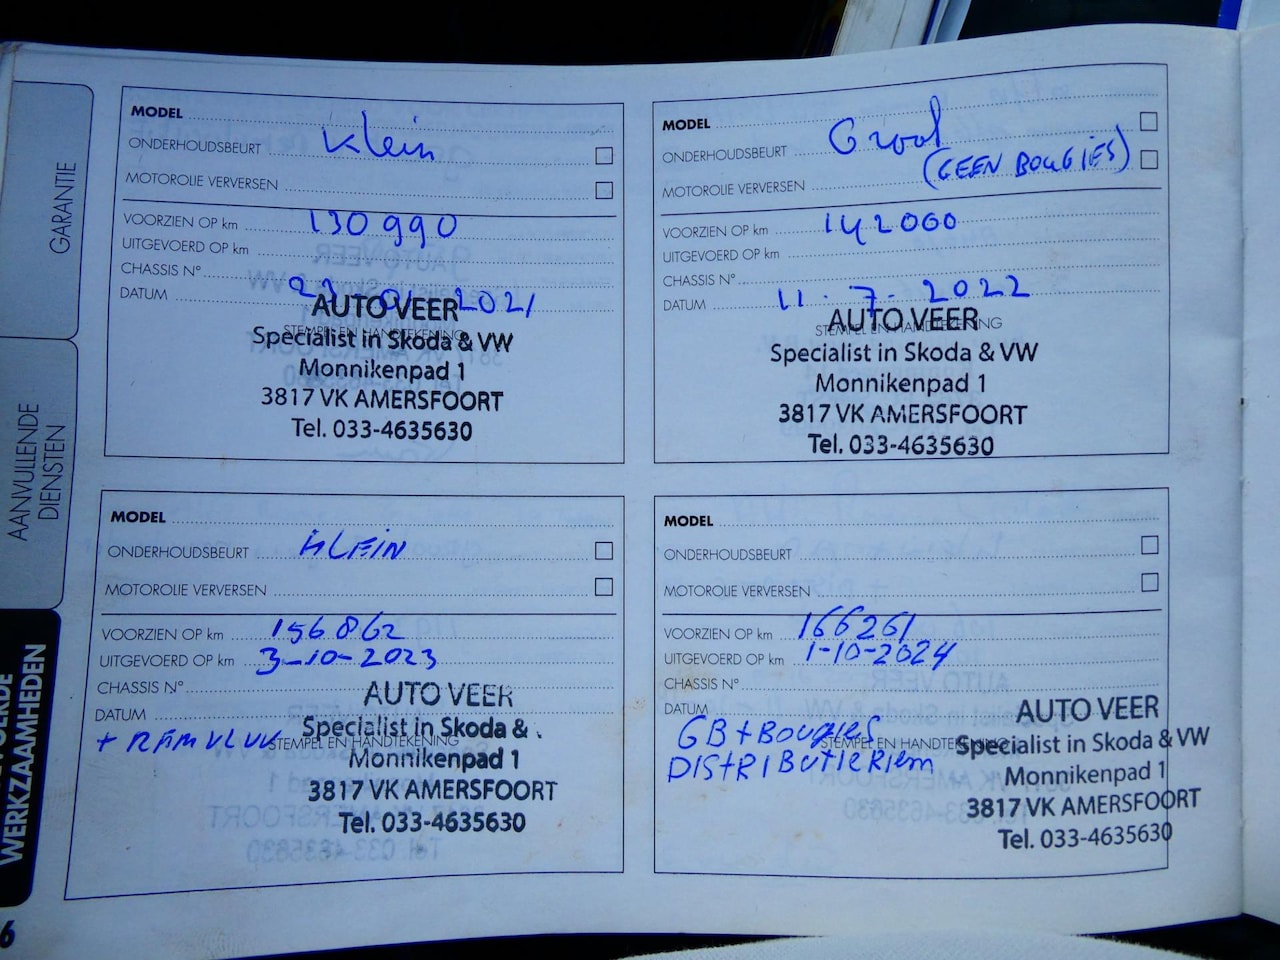 GARANTIE
AANVULLENDE
DIENSTEN
WERKZAAMHEDEN
6
MODEL
ONDERHOUDSBEURT Klein
MOTOROLIE VERVERSEN
VOORZIEN OP km 130990
UITGEVOERD OP km
CHASSIS N°
DATUM 01 2021
STEMPEL EN HANDTEKENING
AUTO VEER
Specialist in Skoda & VW
Monnikenpad 1
3817 VK AMERSFOORT
Tel. 033-4635630
MODEL
ONDERHOUDSBEURT Groot
(GEEN BOUGIES)
MOTOROLIE VERVERSEN
VOORZIEN OP km 142000
UITGEVOERD OP km
CHASSIS N°
DATUM 11-7-2022
STEMPEL EN HANDTEKENING
AUTO VEER
Specialist in Skoda & VW
Monnikenpad 1
3817 VK AMERSFOORT
Tel. 033-4635630
MODEL
ONDERHOUDSBEURT KLEIN
MOTOROLIE VERVERSEN
VOORZIEN OP km 156862
UITGEVOERD OP km 3-10-2023
CHASSIS N°
DATUM
+ REMVLVK
STEMPEL EN HANDTEKENING
AUTO VEER
Specialist in Skoda &
Monnikenpad 1
3817 VK AMERSFOORT
Tel. 033-4635630
MODEL
ONDERHOUDSBEURT
MOTOROLIE VERVERSEN
VOORZIEN OP km 166261
UITGEVOERD OP km 1-10-2024
CHASSIS N°
DATUM
GB+BOUGIES
DISTRIBUTIERIEM
STEMPEL EN HANDTEKENING
AUTO VEER
Specialist in Skoda & VW
Monnikenpad 1
3817 VK AMERSFOORT
Tel. 033-4635630